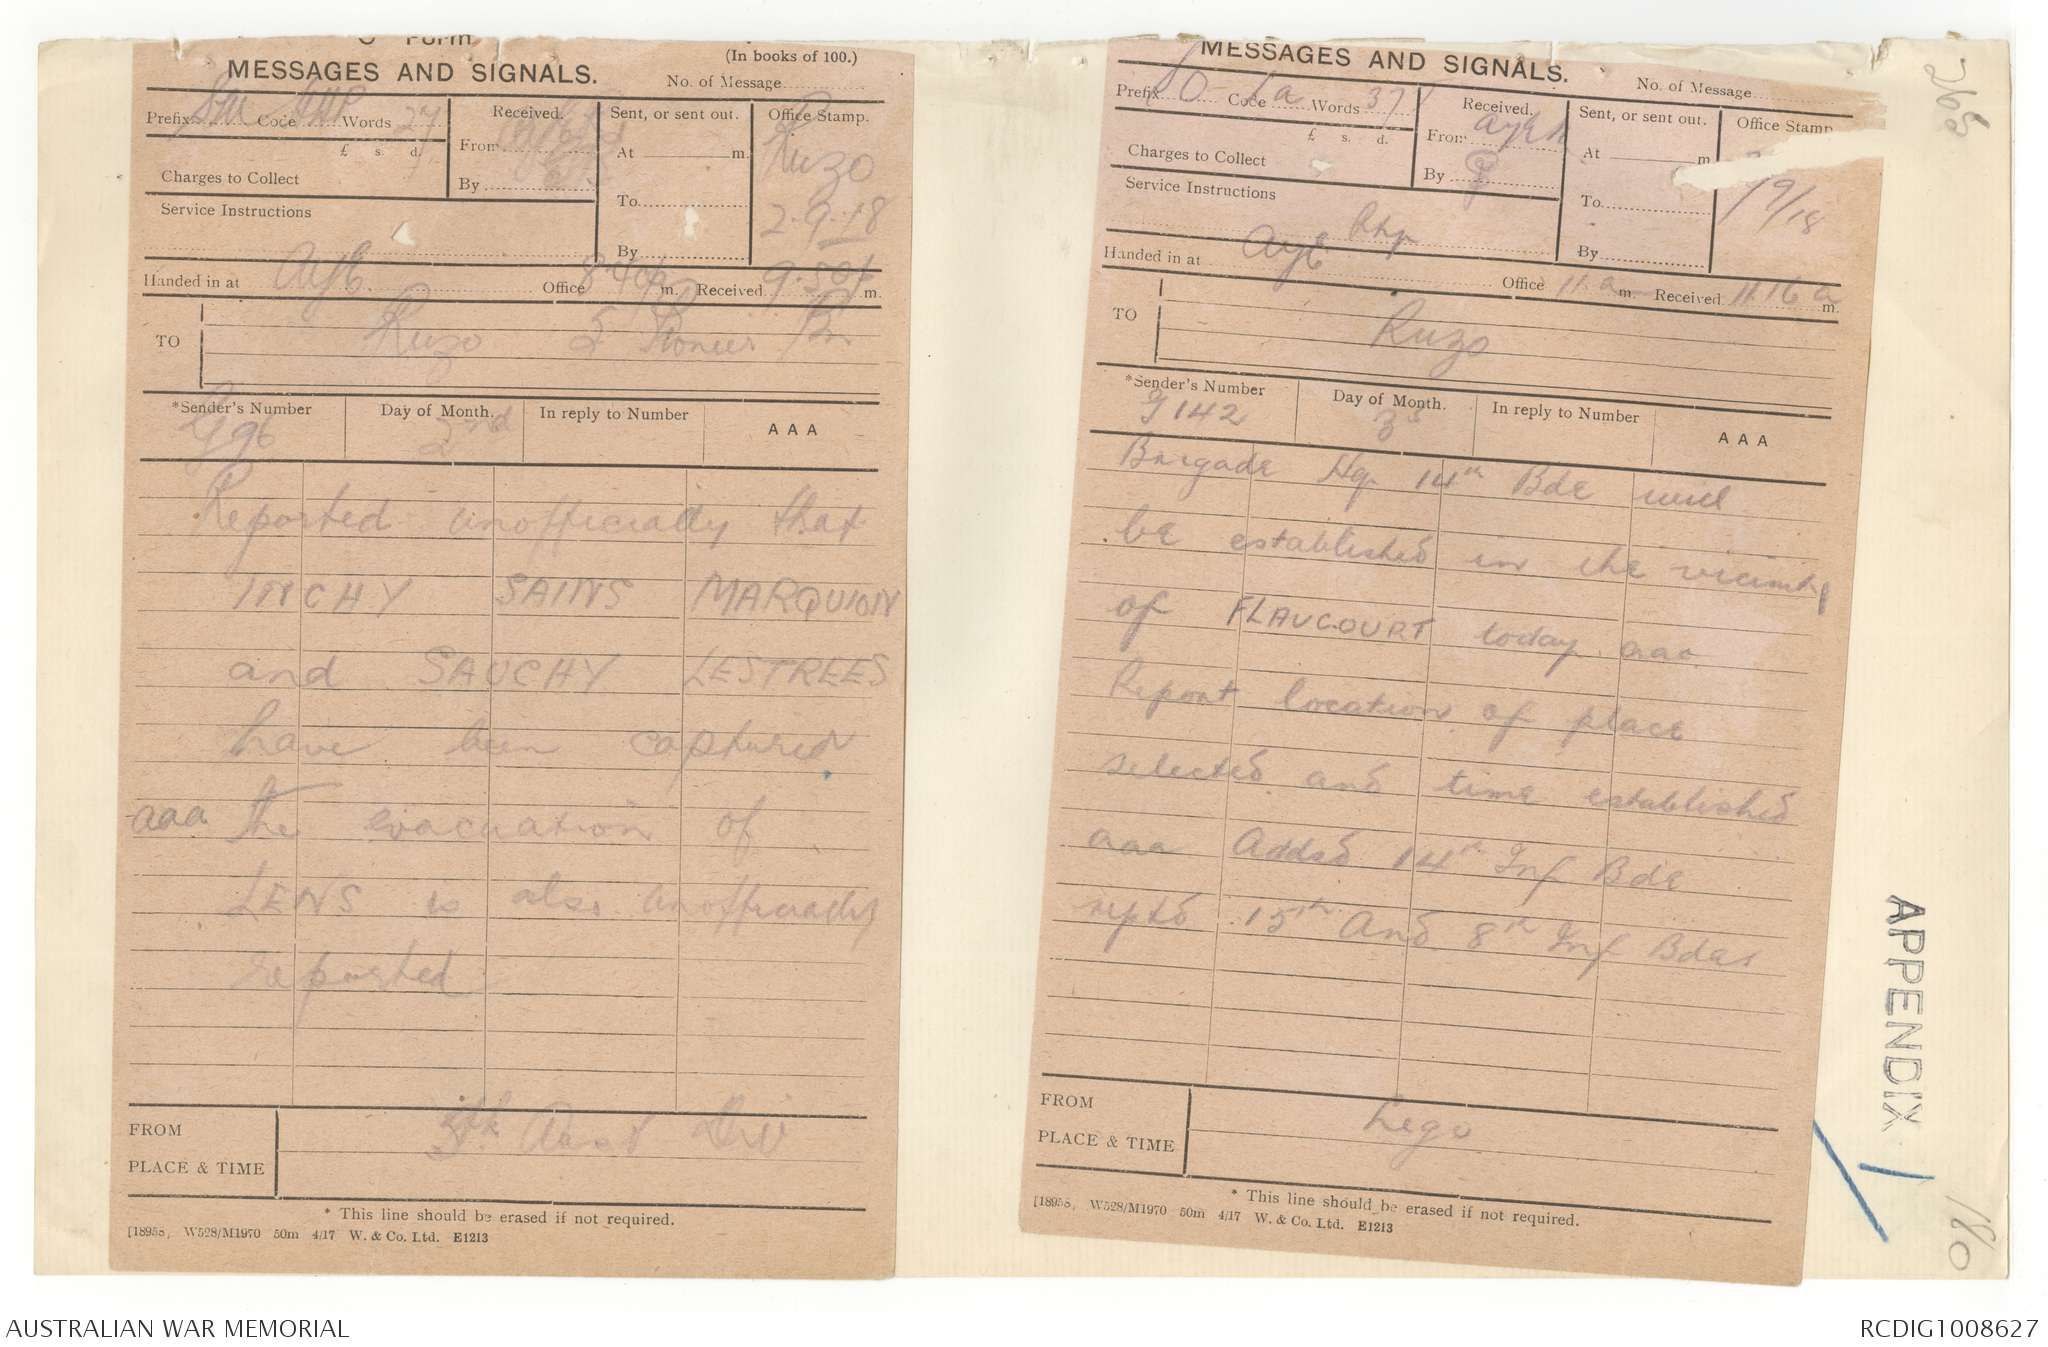 C Form
MESSAGES AND SIGNALS.
(In books of 100.)
No. of Message
Prefix Sm Code Words 27
£ s. d.
Charges to Collect
Service Instructions
Received.
From
By
Sent, or sent out.
At m.
To
By
Office Stamp.
Ruzo
2.9.18
Handed in at Ayb Office m. Received m.
TO Ruzo 5 Pioneer Bn
*Sender's Number
G96
Day of Month.
2nd
In reply to Number
AAA
Reported unofficially that
INCHY SAINS MARQUION
and SAUCHY LESTREES
have been captured
aaa The evacuation of
LENS is also unofficially
reported
FROM 5th Aust Div
PLACE & TIME
* This line should be erased if not required.
[18958, W528/M1970 50m 4/17 W. & Co. Ltd. E1213
MESSAGES AND SIGNALS.
No. of Message
Prefix Code Words 37
£ s. d.
Charges to Collect
Service Instructions
Received.
From
By
Sent, or sent out.
At m
To
By
Office Stamp
/9/18
Handed in at Ayb Office 11.a m. Received 11.16 a m.
TO Ruzo
*Sender's Number
G142
Day of Month.
3
In reply to Number
AAA
Brigade Hq. 14th Bde will
be established in the vicinity
of FLAUCOURT today aaa
Report location of place
selected and time established
aaa Addsd 14th Inf Bde
reptd 15th And 8th Inf Bdes
FROM Lego
PLACE & TIME
* This line should be erased if not required.
[18958, W528/M1970 50m 4/17 W. & Co. Ltd. E1213
265
APPENDIX 1
180
AUSTRALIAN WAR MEMORIAL
RCDIG1008627